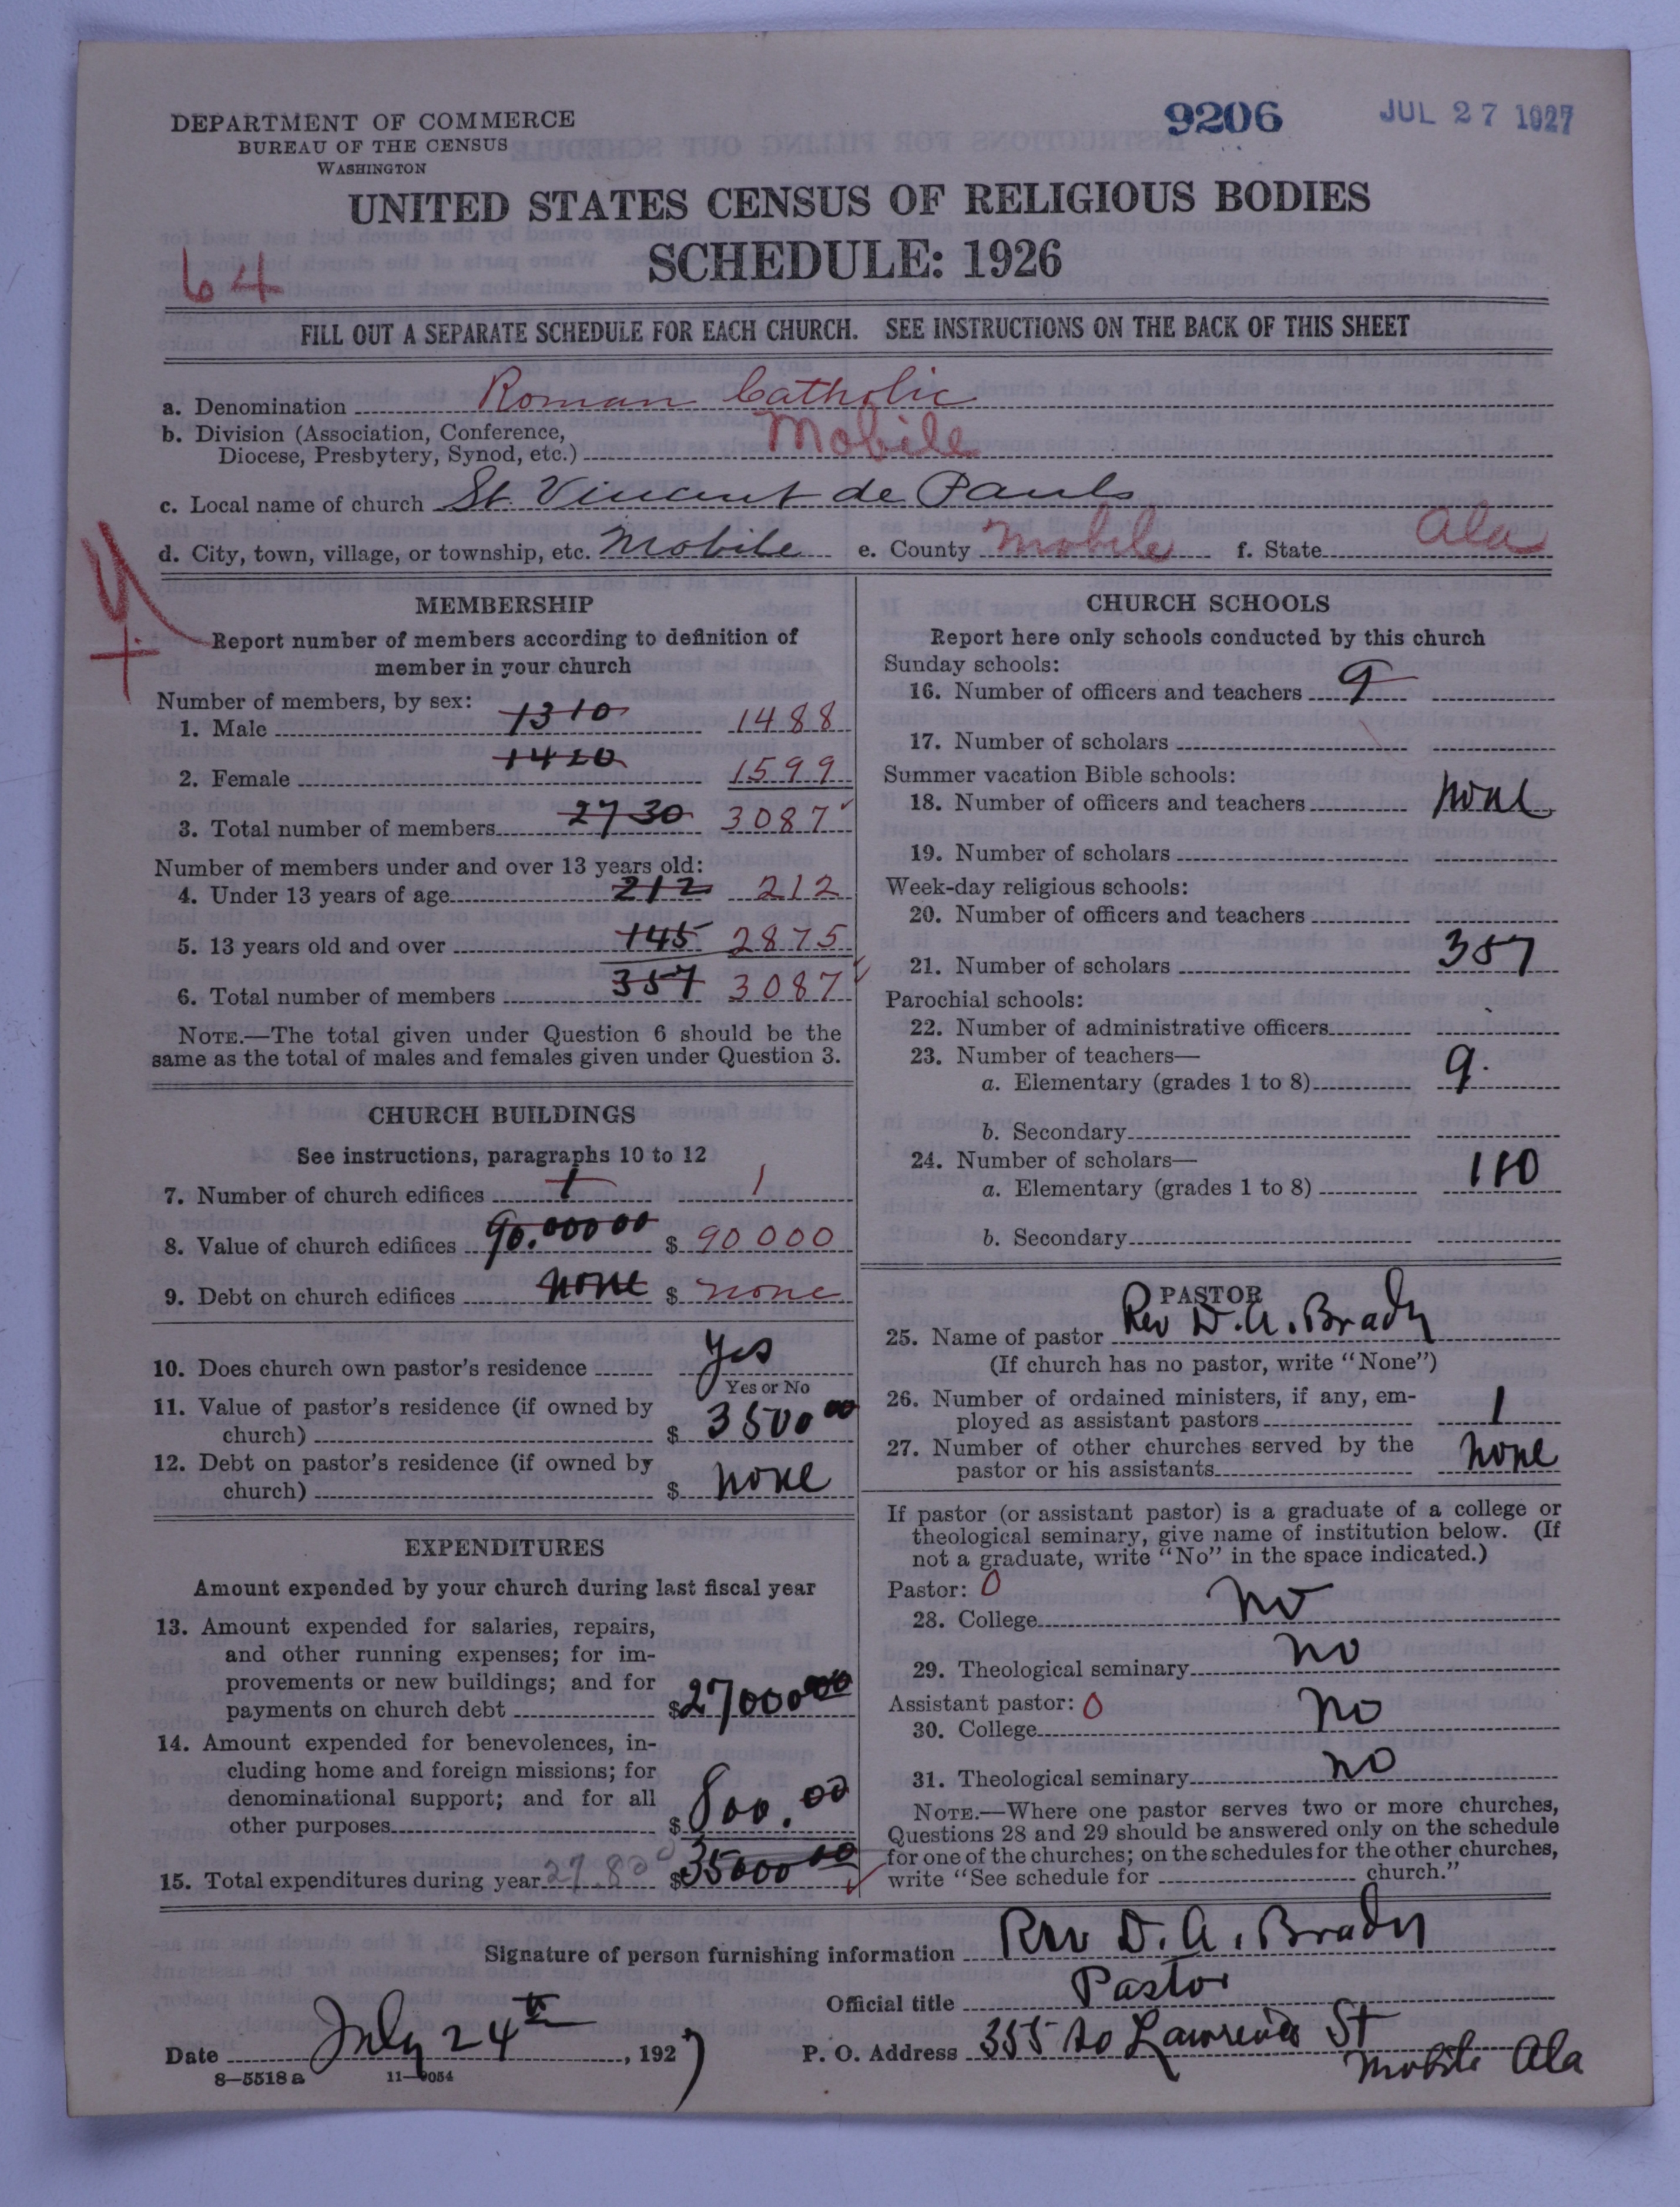 9206 JUL 27 1927
DEPARTMENT OF COMMERCE
BUREAU OF THE CENSUS
WASHINGTON
UNITED STATES CENSUS OF RELIGIOUS BODIES
SCHEDULE: 1926
64
FILL OUT A SEPARATE SCHEDULE FOR EACH CHURCH. SEE INSTRUCTIONS ON THE BACK OF THIS SHEET
a. Denomination Roman Catholic
b. Division (Association, Conference,
Diocese, Presbytery, Synod, etc.) Mobile
c. Local name of church St. Vincent de Pauls
d. City, town, village, or township, etc. Mobile e. County Mobile f. State Ala
MEMBERSHIP
Report number of members according to definition of
member in your church
Number of members, by sex:
1. Male 1310 1488
2. Female 1420 1599
3. Total number of members 2730 3087
Number of members under and over 13 years old:
4. Under 13 years of age 212 212
5. 13 years old and over 145 2875
6. Total number of members 357 3087
NOTE.—The total given under Question 6 should be the
same as the total of males and females given under Question 3.
CHURCH BUILDINGS
See instructions, paragraphs 10 to 12
7. Number of church edifices 1 1
8. Value of church edifices 90.000 00 $ 90000
9. Debt on church edifices none $ none
10. Does church own pastor's residence Yes
Yes or No
11. Value of pastor's residence (if owned by
church) $ 3500 00
12. Debt on pastor's residence (if owned by
church) $ none
EXPENDITURES
Amount expended by your church during last fiscal year
13. Amount expended for salaries, repairs,
and other running expenses; for im-
provements or new buildings; and for
payments on church debt $27000 00
14. Amount expended for benevolences, in-
cluding home and foreign missions; for
denominational support; and for all
other purposes $ 800.00
15. Total expenditures during year 27.800 $35000 00
CHURCH SCHOOLS
Report here only schools conducted by this church
Sunday schools:
16. Number of officers and teachers 9
17. Number of scholars
Summer vacation Bible schools:
18. Number of officers and teachers none
19. Number of scholars
Week-day religious schools:
20. Number of officers and teachers
21. Number of scholars 357
Parochial schools:
22. Number of administrative officers
23. Number of teachers—
a. Elementary (grades 1 to 8) 9.
b. Secondary
24. Number of scholars—
a. Elementary (grades 1 to 8) 110
b. Secondary
PASTOR
25. Name of pastor Rev D. A. Brady
(If church has no pastor, write "None")
26. Number of ordained ministers, if any, em-
ployed as assistant pastors 1
27. Number of other churches served by the
pastor or his assistants none
If pastor (or assistant pastor) is a graduate of a college or
theological seminary, give name of institution below. (If
not a graduate, write "No" in the space indicated.)
Pastor: 0
28. College no
29. Theological seminary no
Assistant pastor: 0
30. College no
31. Theological seminary no
NOTE.—Where one pastor serves two or more churches,
Questions 28 and 29 should be answered only on the schedule
for one of the churches; on the schedules for the other churches,
write "See schedule for church."
Signature of person furnishing information Rev D. A. Brady
Official title Pastor
Date July 24th, 1927 P. O. Address 355 So Lawrence St
Mobile Ala
8—5518a 11—9054